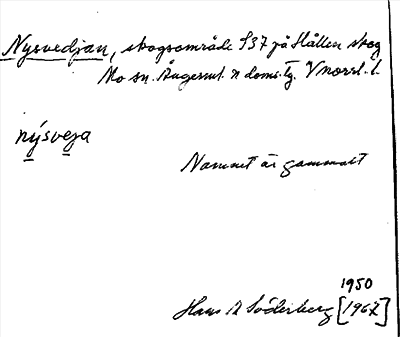 Nysvedjan, skogsområde S37 på Hållen skog
Mo sn. Ångerml. n doms.tg. Vnorrl. l.
nýsveja
Namnet är gammalt
1950
Hans A Söderberg [1967]